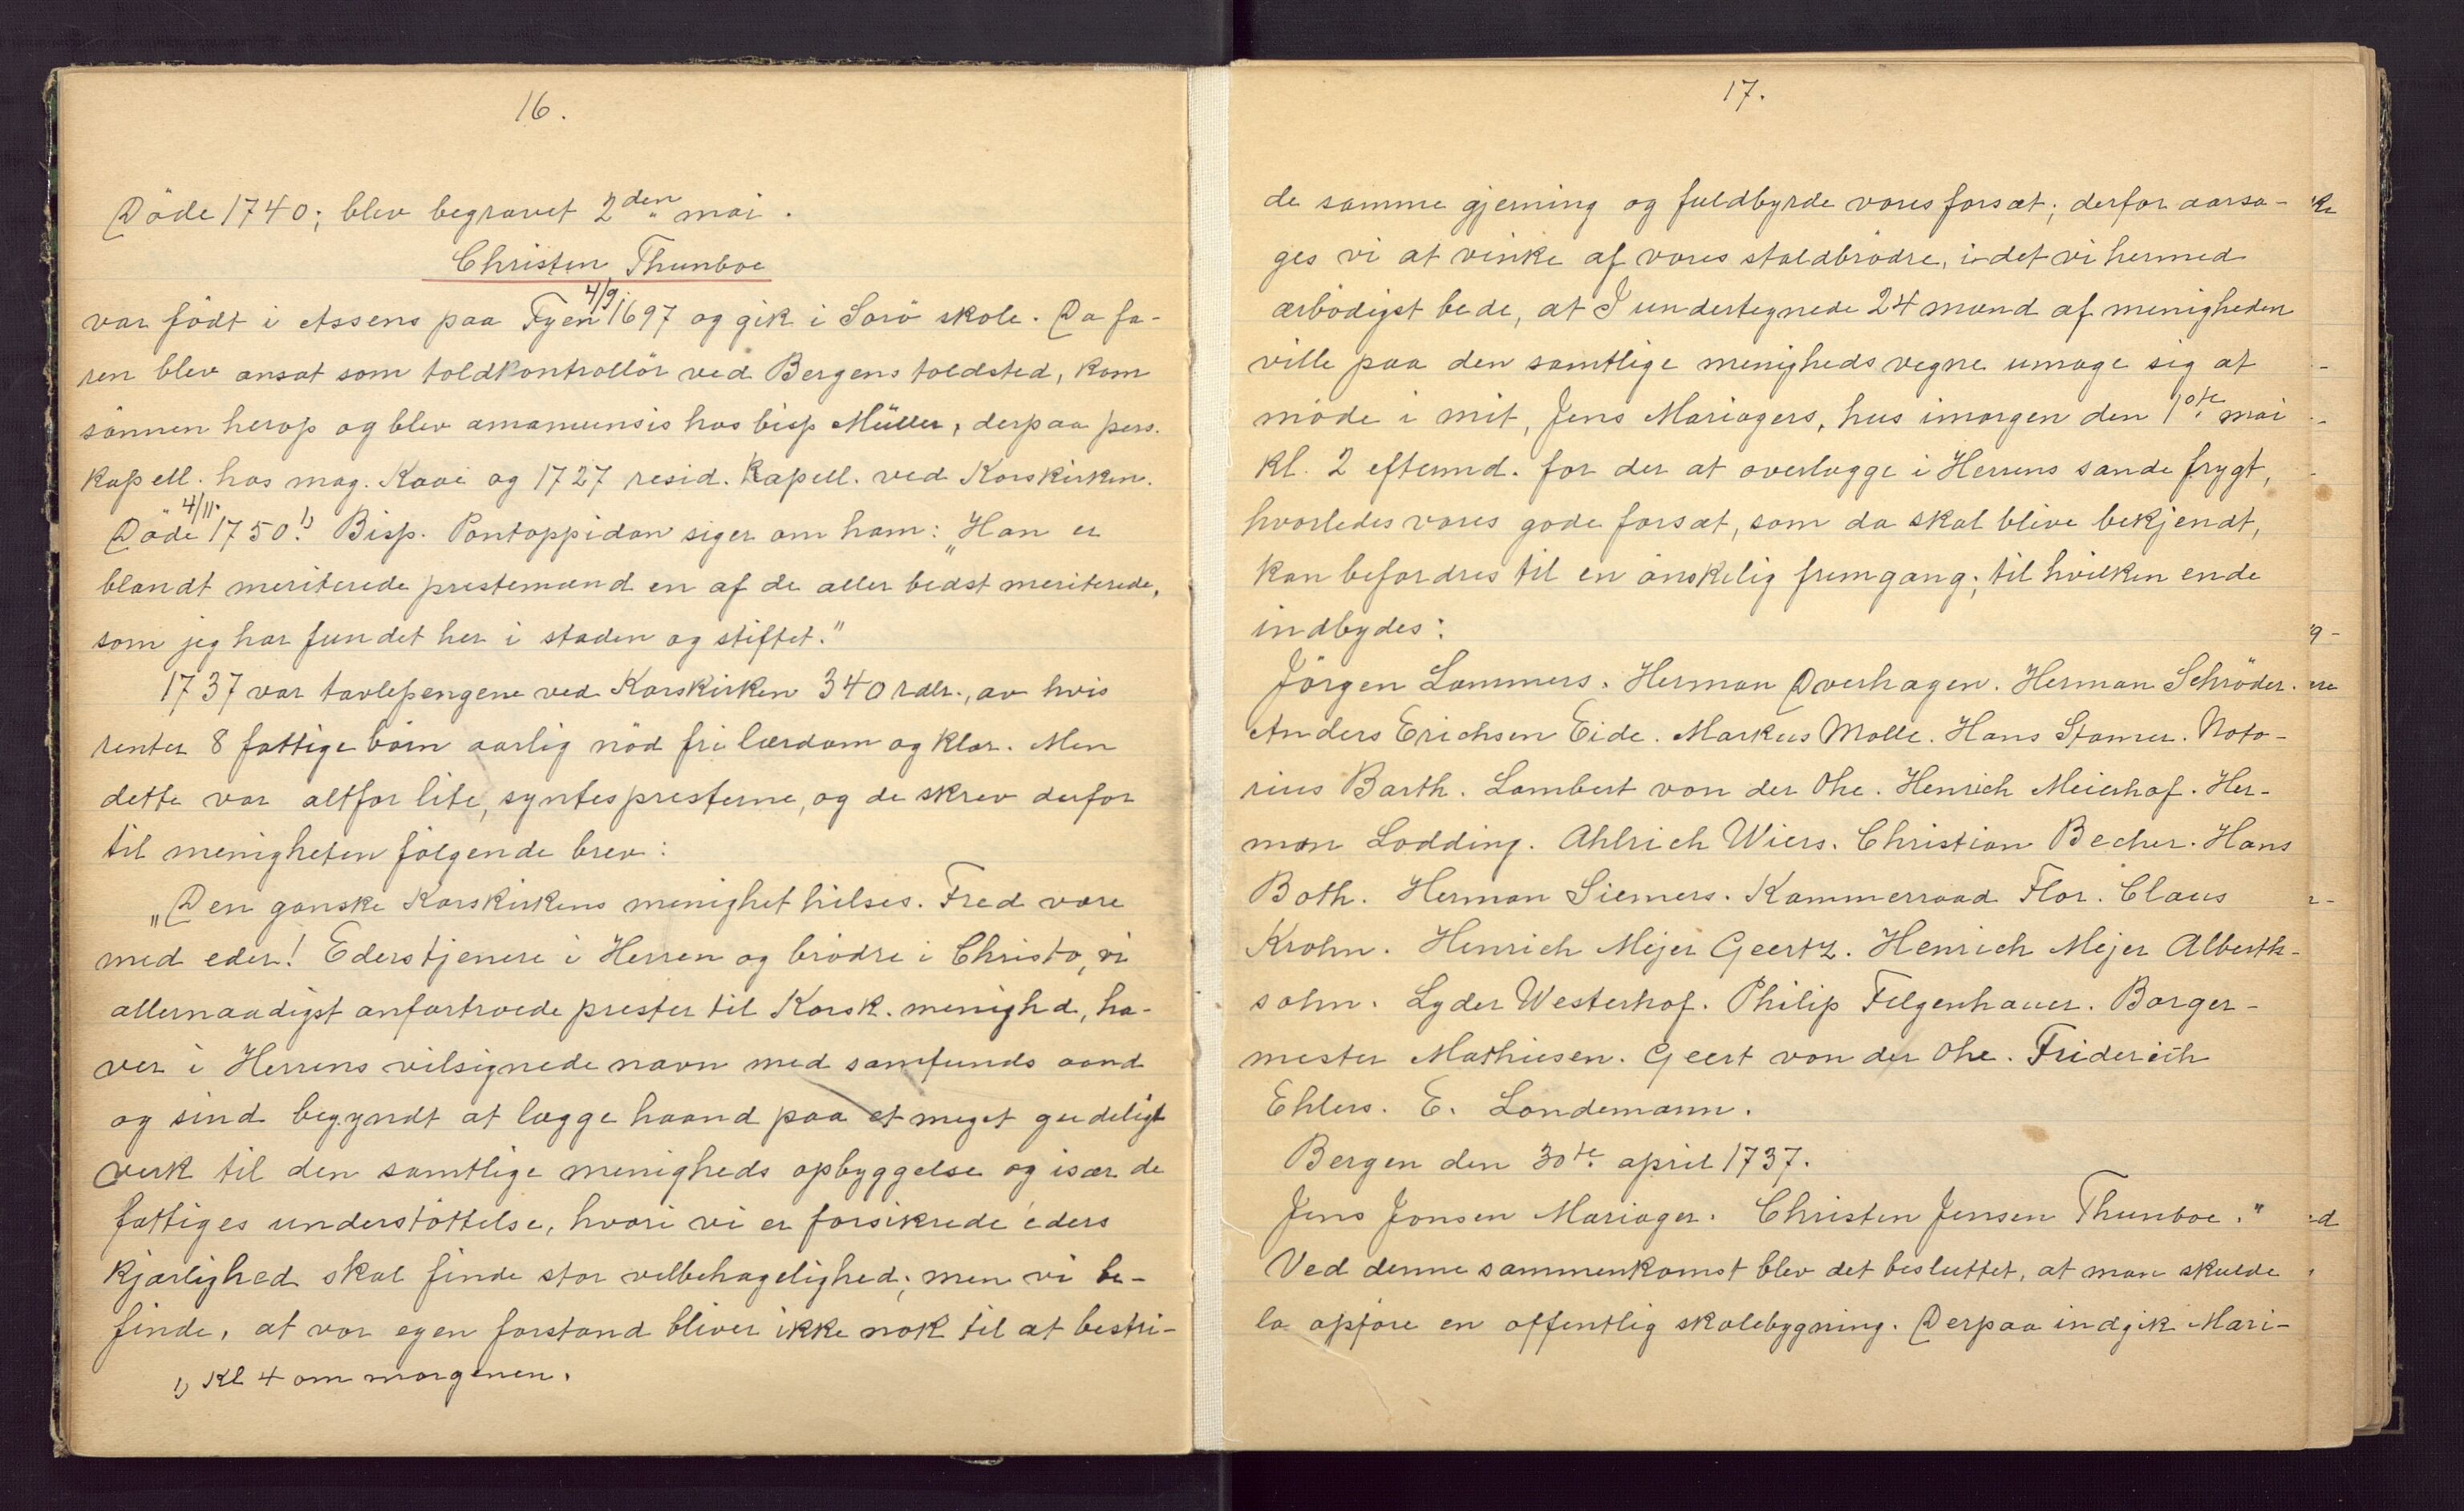 16.
Döde 1740; blev begravet 2den mai.
Christen Thunboe
var födt i Assens paa Fyen 4/9 1697 og gik i Sorö skole. Da fa-
ren blev ansat som toldkontrollör ved Bergens toldsted, kom
sönnen herop og blev amanuensis hos bisp Müller, derpaa pers.
kapell. hos mag. Kaae og 1727 resid. kapell. ved Korskirken.
Döde 4/11. 1750.1) Bisp. Pontoppidan siger om ham: „Han er
blandt meriterede prestemænd en af de aller bedst meriterede,
som jeg har fundet her i staden og stiftet."
1737 var tavlepengene ved Korskirken 340 rdlr., av hvis
renter 8 fattige börn aarlig nöd fri lærdom og klær. Men
dette var altfor lite, syntes presterne, og de skrev derfor
til menigheten følgende brev:
„Den ganske Korskirkens menighet hilses. Fred være
med eder! Eders tjenere i Herren og brödre i Christo, vi
allernaadigst anfortroede prester til Korsk. menighd, ha-
ver i Herrens vilsignede navn med samfunds aand
og sind begyndt at lægge haand paa et meget gudeligt
verk til den samtlige menigheds opbyggelse og især de
fattiges understöttelse, hvori vi er forsikrede eders
kjærlighed skal finde stor velbehagelighed; men vi be-
finde, at vor egen forstand bliver ikke nok til at bestri-
1) Kl 4 om morgenen.
17.
de samme gjerning og fuldbyrde vores forsæt; derfor aarsa-
ges vi at vinke af vores staldbrödre, i det vi hermed
ærbödigst bede, at I undertegnede 24 mænd af menigheden
ville paa den samtlige menigheds vegne umage sig at
möde i mit, Jens Mariagers, hus imorgen den 1ste mai
kl. 2 eftermd. for der at overlægge i Herrens sande frygt,
hvorledes vores gode forsæt, som da skal blive bekjendt,
kan befordres til en önskelig fremgang; til hvilken ende
indbydes:
Jörgen Lammers. Herman Dverhagen. Herman Schröder.
Anders Erichsen Eide. Markus Molle. Hans Stamer. Nota-
rius Barth. Lambert von der Ohe. Henrich Meierhof. Her-
man Lodding. Ahlrich Wiers. Christian Becher. Hans
Both. Herman Siemers. Kammerraad Flor. Claus
Krohn. Henrich Mejer Geertz. Henrich Mejer Alberth-
sohn. Lyder Westerhof. Philip Felgenhauer. Borger-
mester Mathiesen. Geert von der Ohe. Friderich
Ehlers. E. Londemann.
Bergen den 30te april 1737.
Jens Jansen Mariager. Christen Jensen Thunboe."
Ved denne sammenkomst blev det besluttet, at man skulde
la opföre en offentlig skolebygning. Derpaa indgik Mari-